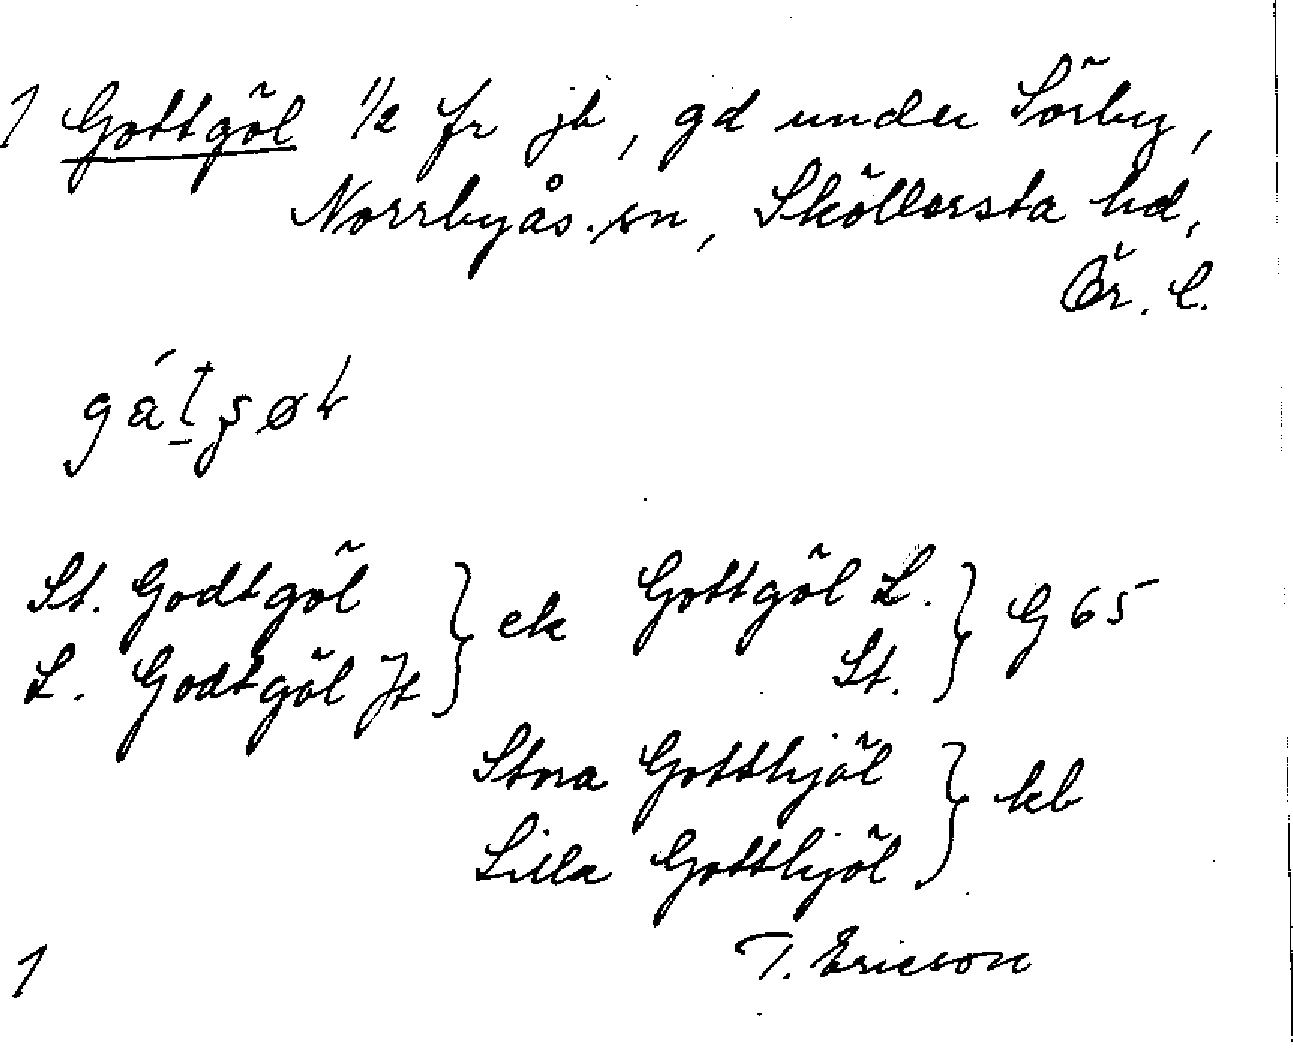 1 Gottgöl 1/2 fr jb, gd under Sörby,
Norrbyås sn, Sköllersta hd,
Ör. l.
St. Godtgöl
L. Godtgöl Jt } ek
Gottgöl L.
St. } G 65
Stora Gotthjöl
Lilla Gotthjöl } kb
T. Ericson
1